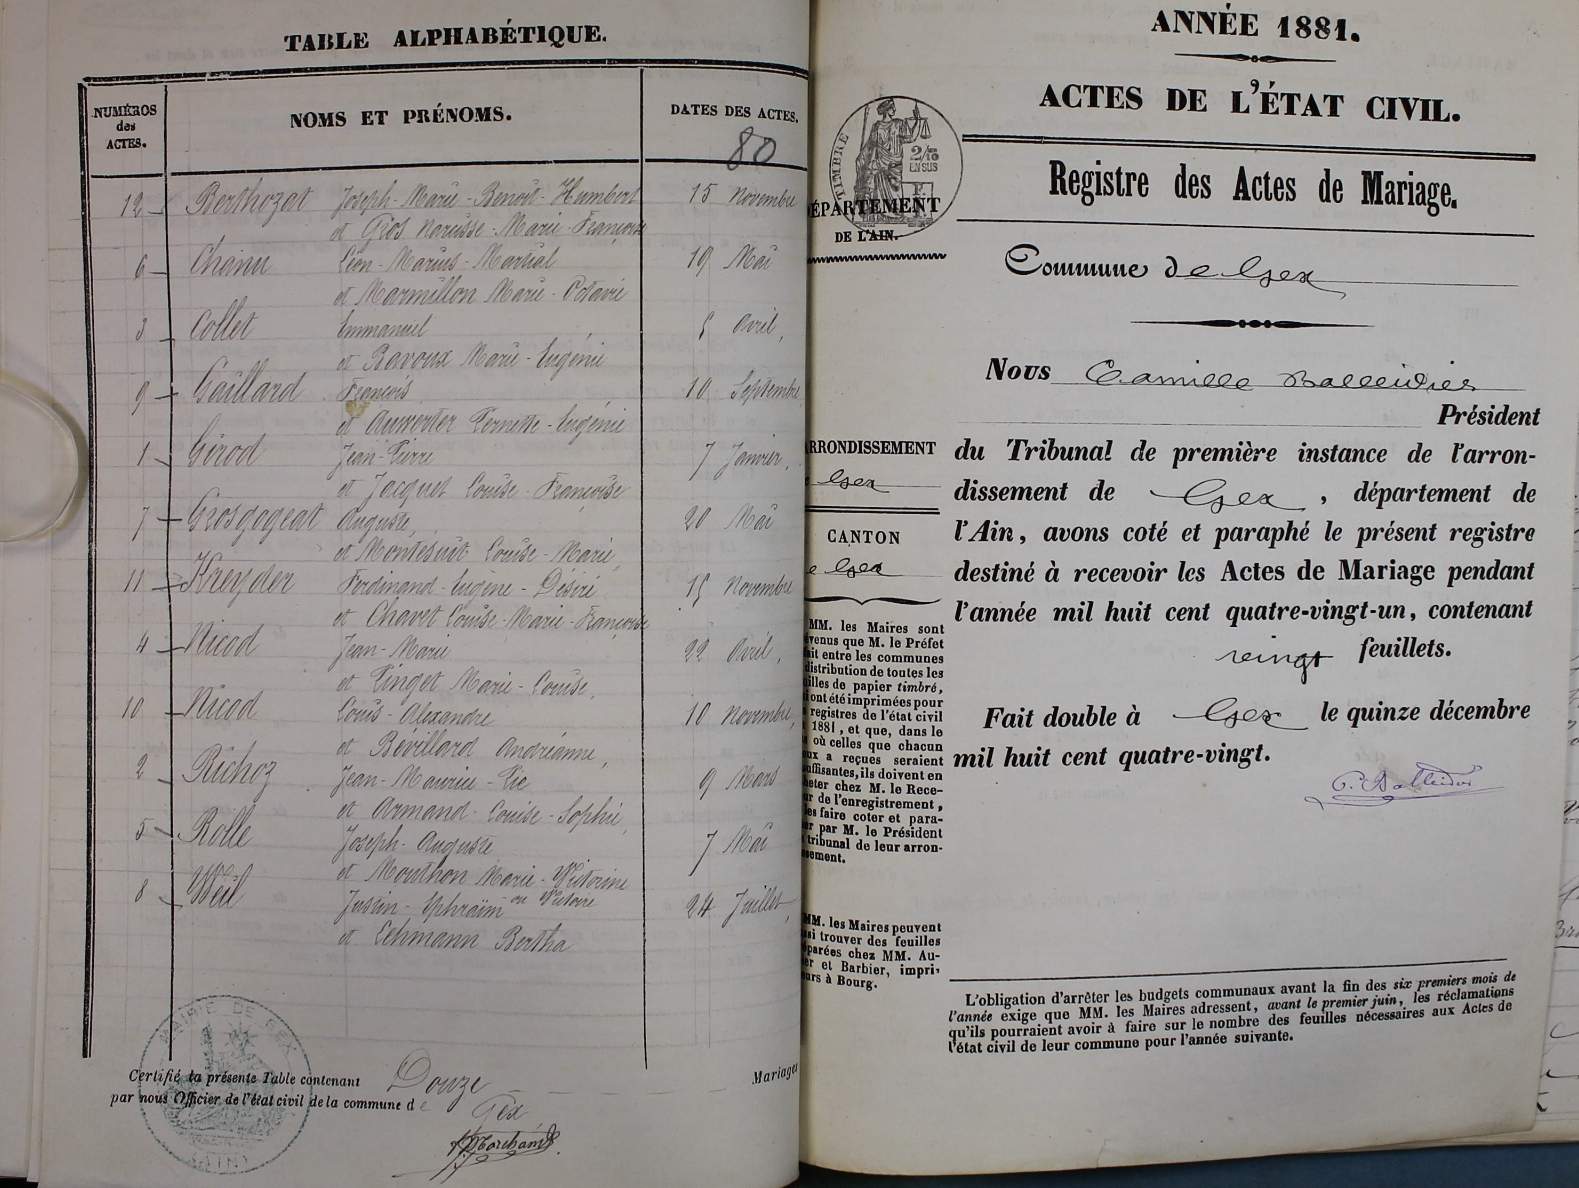 TABLE ALPHABÉTIQUE.
NUMÉROS
des
ACTES.
NOMS ET PRÉNOMS.
DATES DES ACTES.
80
12 Berthozat Joseph-Marie-Benoît-Humbert 15 Novembre
et Gros Narcisse-Marie-Françoise
6 Chanu Léon-Marius-Martial 19 Mai
et Marmillon Marie-Octavie
3 Collet Emmanuel 5 Avril,
et Ravoux Marie-Eugénie
9 Gaillard François 10 Septembre
et Auwerter Pernette-Eugénie
1 Girod Jean-Pierre 7 Janvier,
et Jacquet Louise-Françoise
7 Grosgogeat Auguste 20 Mai
et Montésuit Louise-Marie,
11 Kreyder Ferdinand-Eugène-Désiré 15 Novembre
et Chavet Louise-Marie-Françoise
4 Nicod Jean-Marie 22 Avril,
et Pinget Marie-Louise,
10 Nicod Louis-Alexandre 10 Novembre,
et Bévillard Andréanne,
2 Richoz Jean-Maurice-Pie 9 Mars
et Armand-Louise-Sophie,
5 Rolle Joseph-Auguste 7 Mai
et Mouthon Marie-Victorine
ou Victoire
8 Weil Justin-Ephraïm 24 Juillet,
et Lehmann Bertha
Certifié la présente Table contenant Douze Mariages
par nous Officier de l'état civil de la commune de Gex
Marchand
MAIRIE DE GEX
(AIN)
ANNÉE 1881.
ACTES DE L'ÉTAT CIVIL.
Registre des Actes de Mariage.
TIMBRE
2/10
EN SUS
DÉPARTEMENT
DE L'AIN.
Commune de Gex
Nous Camille Balleidier
Président
du Tribunal de première instance de l'arron-
dissement de Gex, département de
l'Ain, avons coté et paraphé le présent registre
destiné à recevoir les Actes de Mariage pendant
l'année mil huit cent quatre-vingt-un, contenant
vingt feuillets.
Fait double à Gex le quinze décembre
mil huit cent quatre-vingt.
C. Balleidier
ARRONDISSEMENT
e Gex
CANTON
e Gex
MM. les Maires sont
venus que M. le Préfet
ait entre les communes
distribution de toutes les
illes de papier timbré,
i ont été imprimées pour
registres de l'état civil
1881, et que, dans le
où celles que chacun
ux a reçues seraient
uffisantes, ils doivent en
heter chez M. le Rece-
ur de l'enregistrement,
les faire coter et para-
er par M. le Président
tribunal de leur arron-
ssement.
MM. les Maires peuvent
ssi trouver des feuilles
éparées chez MM. Au-
er et Barbier, impri-
eurs à Bourg.
L'obligation d'arrêter les budgets communaux avant la fin des six premiers mois de
l'année exige que MM. les Maires adressent, avant le premier juin, les réclamations
qu'ils pourraient avoir à faire sur le nombre des feuilles nécessaires aux Actes de
l'état civil de leur commune pour l'année suivante.